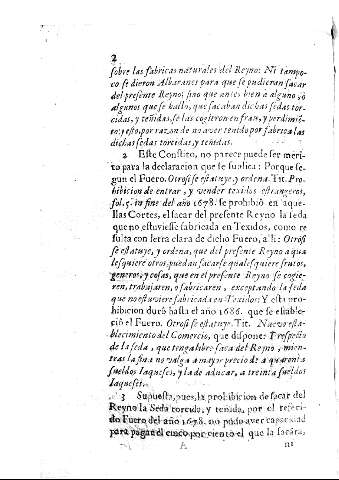 2
sobre las fabricas naturales del Reyno: Ni tampo-
co se dieron Albaranes para que se pudieran sacar
del presente Reyno; sino que antes bien a alguno, ò
algunos que se hallo, que sacaban dichas sedas tor-
cidas, y teñidas, se las cogieron en frau, y perdimiẽ-
to; y esto, por razon de no aver tenido por fabrica las
dichas sedas torcidas, y teñidas.
2 Este Constito, no parece puede ser meri-
to para la declaracion que se suplica: Porque se-
gun el Fuero. Otrosi se estatuye, y ordena. Tit. Pro-
hibicion de entrar, y vender texidos estrangeros,
fol. 5. in fine del año 1678. se prohibiò en aque-
llas Cortes, el sacar del presente Reyno la seda
que no estuviesse fabricada en Texidos, como re
sulta con letra clara de dicho Fuero, alli: Otrosi
se estatuye, y ordena, que del presente Reyno a qua
lesquiere otros, puedan sacarse qualesquiere frutos,
generos, y cosas, que en el presente Reyno se cogie-
ren, trabajaren, o fabricaren, exceptando la seda
que no estuviere fabricada en Texidos: Y esta pro-
hibicion durò hasta el año 1686. que se estable-
ciò el Fuero. Otrosi se estatuye. Tit. Nuevo esta-
blecimiento del Comercio, que dispone: Y respecto
de la seda, que tenga libre saca del Reyno, mien-
tras la fina no valga a mayor precio de a quarenta
sueldos Iaqueses, y la de aducar, a treinta sueldos
Iaqueses.
3 Supuesta, pues, la prohibicion de sacar del
Reyno la Seda torcida, y teñida, por el referi-
do Fuero del año 1678. no pudo aver capacidad
para pagar el cinco por ciento el que la sacára,
A